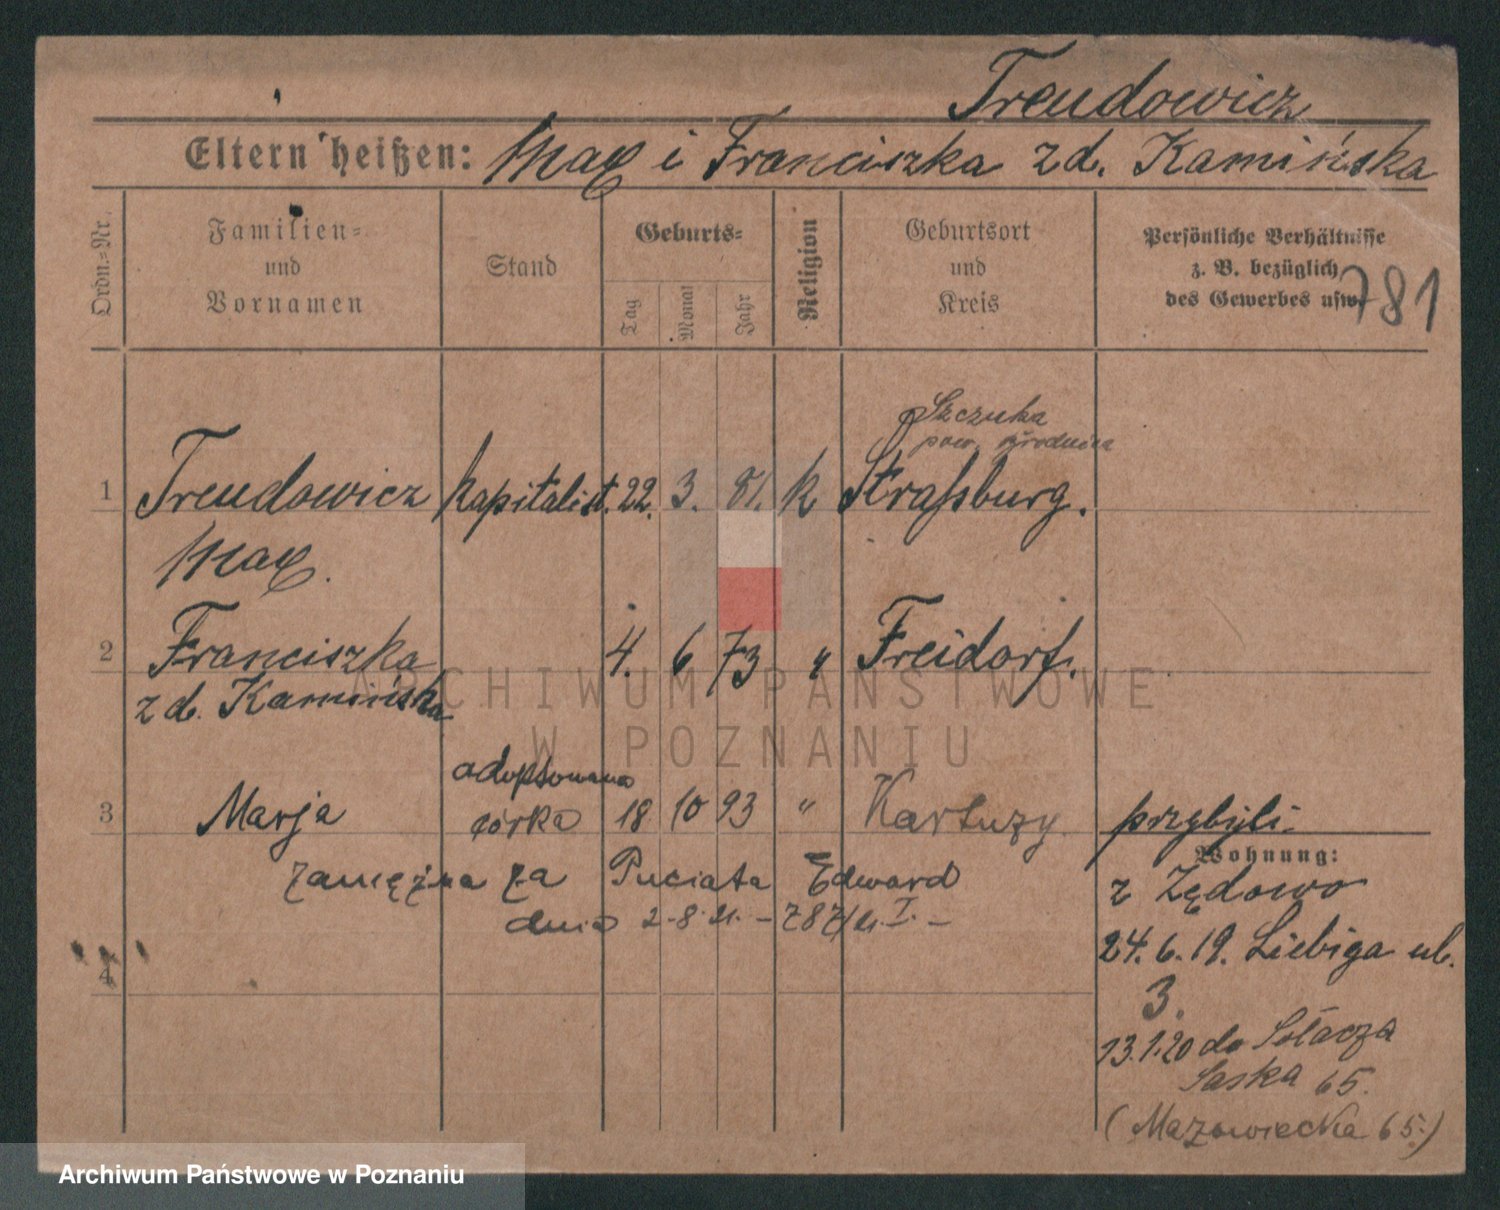 Treudowicz
Eltern heißen: Max i Franciszka zd. Kamińska
Ordn.-Nr.
Familien-
und
Vornamen
Stand
Geburts-
Tag
Monat
Jahr
Religion
Geburtsort
und
Kreis
Persönliche Verhältnisse
z. B. bezüglich
des Gewerbes usw.
781
Szczuka
pow.
1 Treudowicz kapitalist. 22. 3. 81. k Straßburg.
Max.
2 Franciszka 4. 6 73 " Freidorf.
zd. Kamińska
adoptowana
3 Marja córka 18 10 93 " Kartuzy przybyli
zamężna za Puciata Edward
Wohnung:
z Zędowo
dnia 2-8.21. - 787/21. I. -
24. 6. 19. Liebiga ul.
4
3.
13.1.20 do Sołacza
Saska 65.
(Mazowiecka 65.)
ARCHIWUM PAŃSTWOWE
W POZNANIU
Archiwum Państwowe w Poznaniu